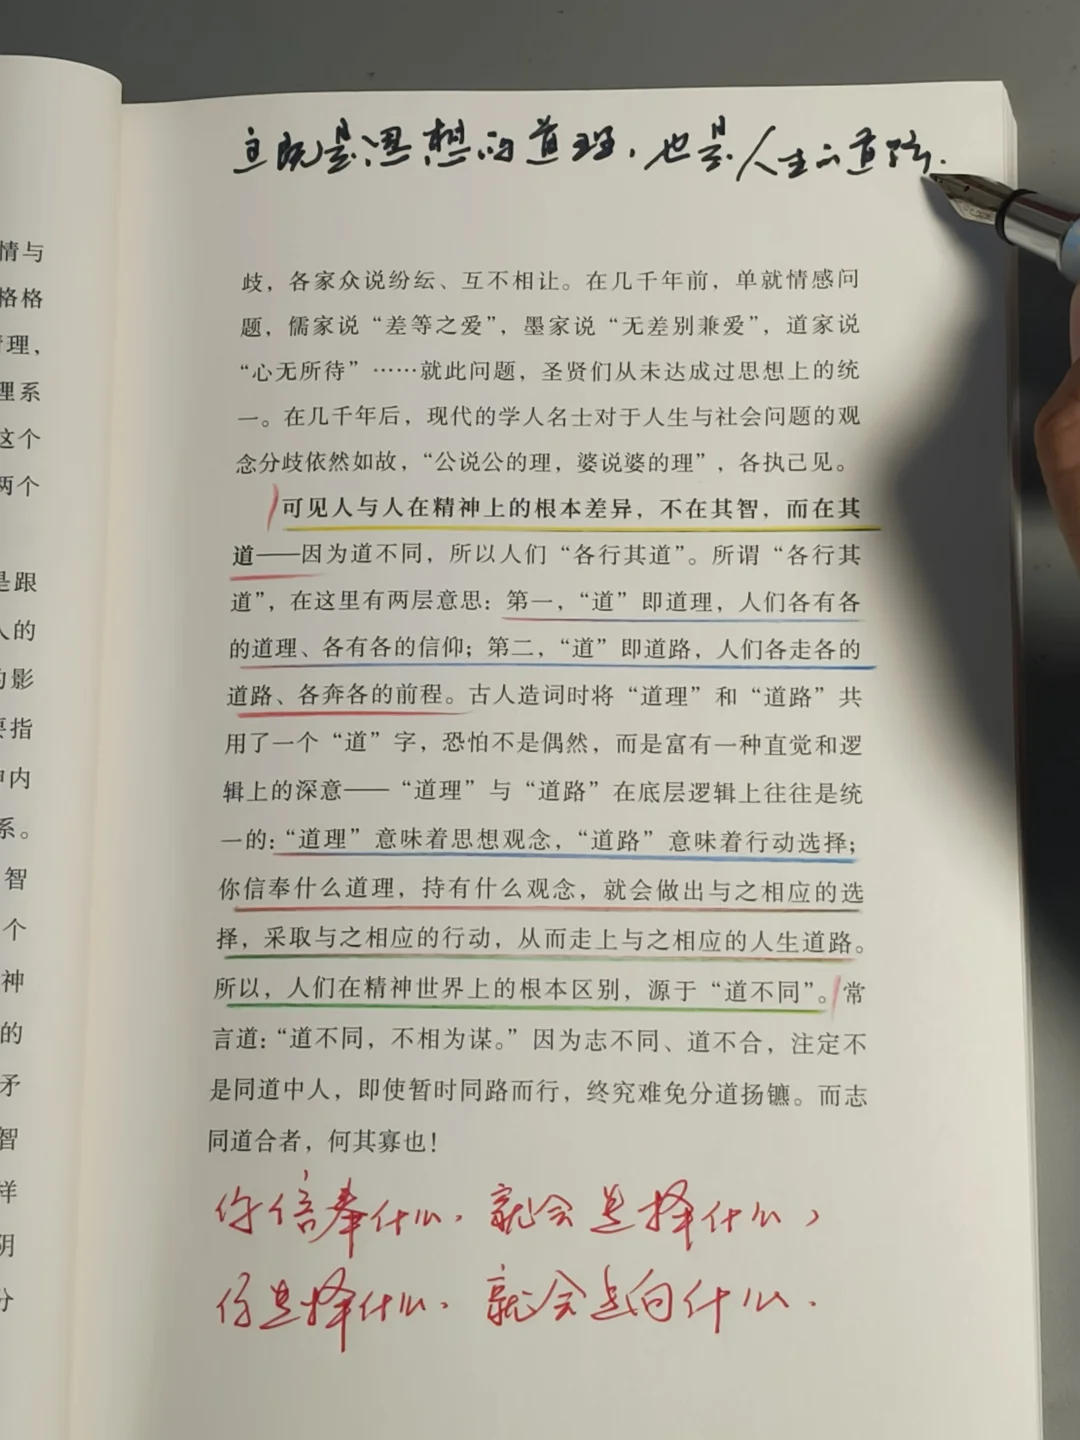 道既是思想的道理，也是人生的道路.
情与
格格
理，
理系
这个
两个
是跟
人的
的影
要指
中内
系。
智
个
神
的
矛
智
样
阴
分
歧，各家众说纷纭、互不相让。在几千年前，单就情感问
题，儒家说“差等之爱”，墨家说“无差别兼爱”，道家说
“心无所待”……就此问题，圣贤们从未达成过思想上的统
一。在几千年后，现代的学人名士对于人生与社会问题的观
念分歧依然如故，“公说公的理，婆说婆的理”，各执己见。
可见人与人在精神上的根本差异，不在其智，而在其
道——因为道不同，所以人们“各行其道”。所谓“各行其
道”，在这里有两层意思：第一，“道”即道理，人们各有各
的道理、各有各的信仰；第二，“道”即道路，人们各走各的
道路、各奔各的前程。古人造词时将“道理”和“道路”共
用了一个“道”字，恐怕不是偶然，而是富有一种直觉和逻
辑上的深意——“道理”与“道路”在底层逻辑上往往是统
一的：“道理”意味着思想观念，“道路”意味着行动选择；
你信奉什么道理，持有什么观念，就会做出与之相应的选
择，采取与之相应的行动，从而走上与之相应的人生道路。
所以，人们在精神世界上的根本区别，源于“道不同”。常
言道：“道不同，不相为谋。”因为志不同、道不合，注定不
是同道中人，即使暂时同路而行，终究难免分道扬镳。而志
同道合者，何其寡也！
你信奉什么.就会选择什么，
你选择什么.就会走向什么.